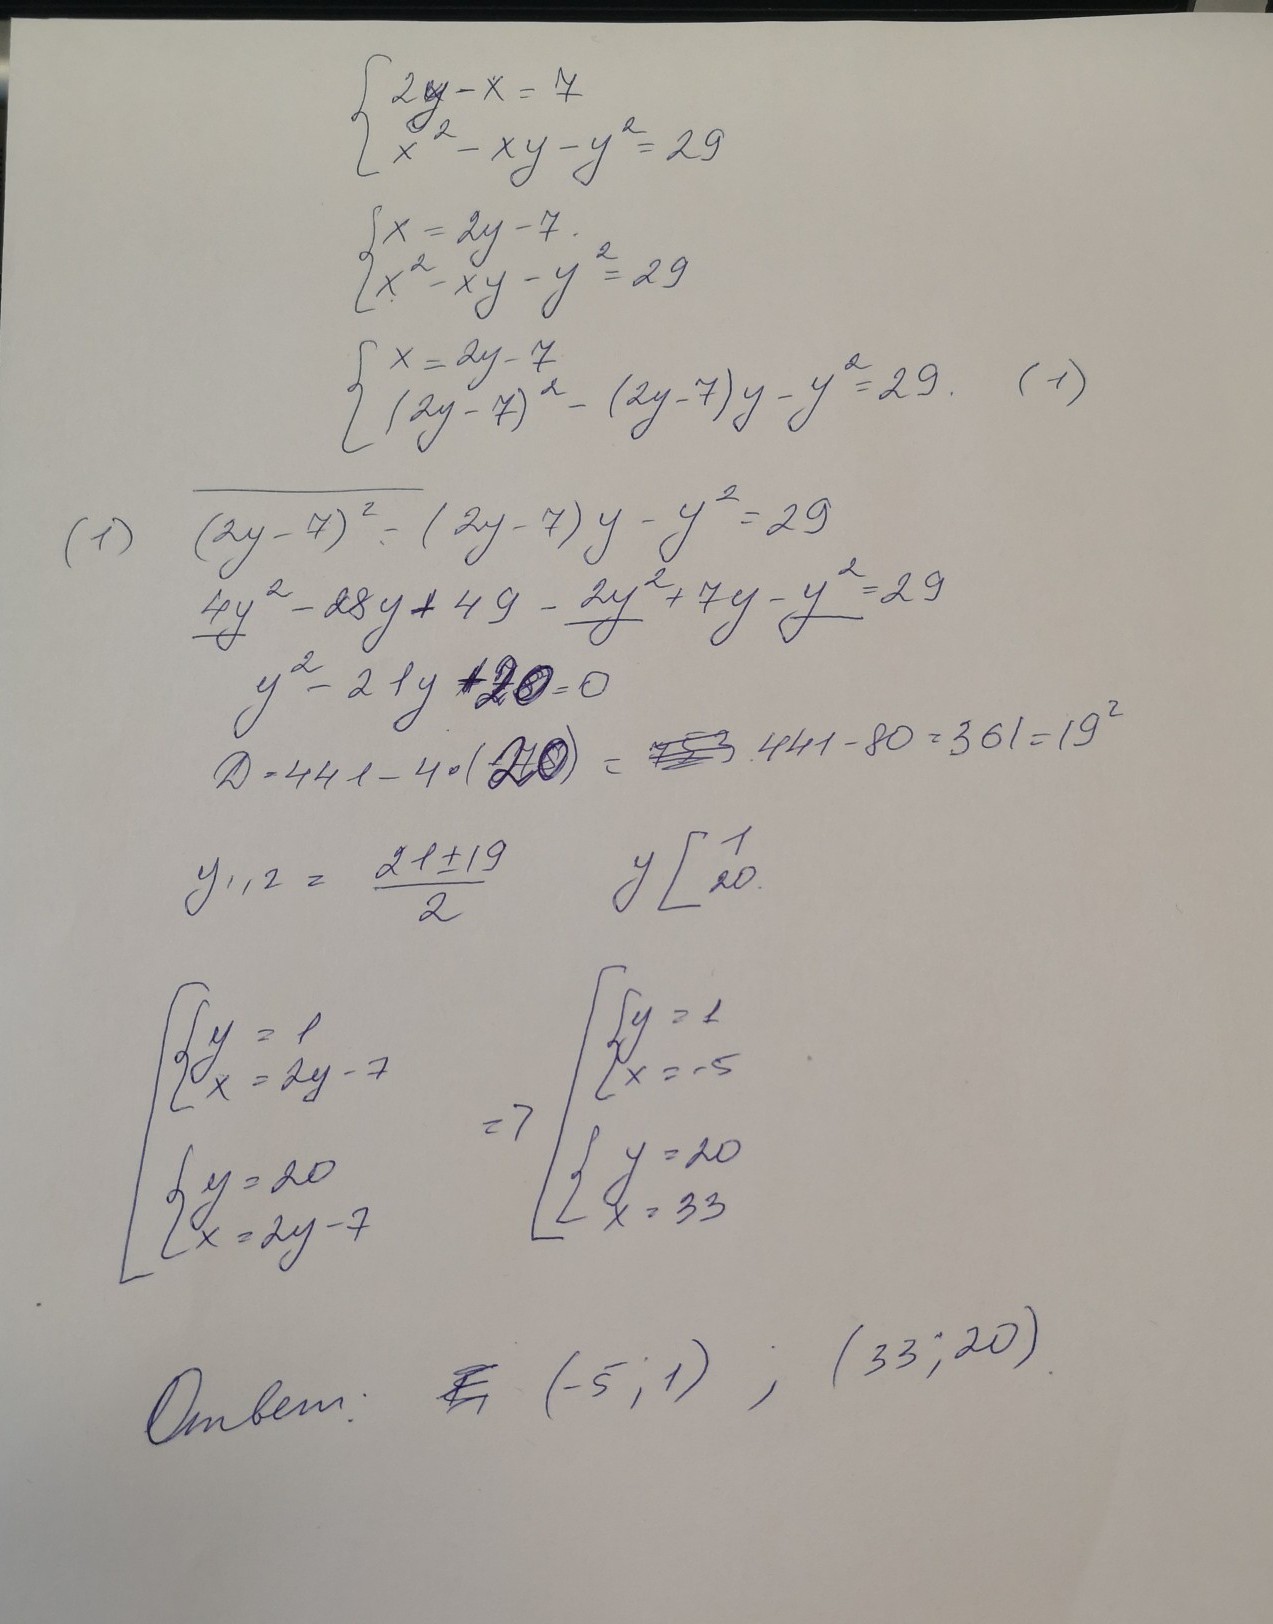 { 2y - x = 7
x² - xy - y² = 29
{ x = 2y - 7.
x² - xy - y² = 29
{ x = 2y - 7
(2y - 7)² - (2y - 7)y - y² = 29. (1)
(1) (2y - 7)² - (2y - 7)y - y² = 29
4y² - 28y + 49 - 2y² + 7y - y² = 29
y² - 21y + 20 = 0
D = 441 - 4·(20) = 441 - 80 = 361 = 19²
y₁,₂ = (21 ± 19)/2 y [ 1
20.
[ { y = 1
x = 2y - 7
{ y = 20
x = 2y - 7
=> [ { y = 1
x = -5
{ y = 20
x = 33
Ответ: (-5; 1) ; (33; 20).